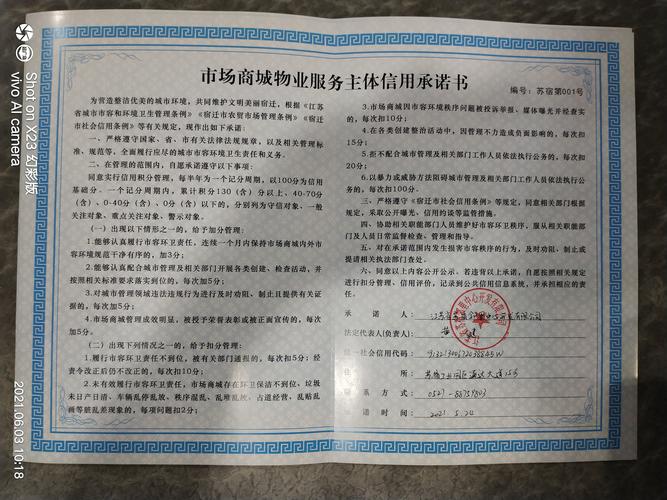 市场商城物业服务主体信用承诺书
编号：苏宿第001号
为营造整洁优美的城市环境，共同维护文明美丽宿迁，根据《江苏
省城市市容和环境卫生管理条例》《宿迁市农贸市场管理条例》《宿迁
市社会信用条例》等有关规定，现作出如下承诺：
一、严格遵守国家、省、市有关法律法规规章，以及相关管理标
准、规范等，全面履行应尽的城市市容环境卫生责任和义务。
二、在管理的范围内，自愿承诺遵守以下事项：
同意实行信用积分管理，每半年为一个记分周期，以100分为信用
基础分。一个记分周期内，累计积分130（含）分以上、40-70分
（含）、0-40分（含）、0分（含）以下的，分别列为守信对象、一般
关注对象、重点关注对象、警示对象。
（一）出现以下情形之一的，给予加分管理：
1.能够认真履行市容环卫责任，连续一个月内保持市场商城内外市
容环境规范干净有序的，加3分；
2.能够认真配合城市管理及相关部门开展各类创建、检查活动，并
按照相关标准要求落实到位的，每次加5分；
3.对城市管理领域违法违规行为进行及时劝阻、制止且提供有关证
据的，每次加5分；
4.市场商城管理成效明显，被授予荣誉表彰或被正面宣传的，每次
加5分；
（二）出现下列情况之一的，给予扣分管理：
1.履行市容环卫责任不到位，被有关部门通报的，每次扣5分；经
责令改正后仍不改正的，每次扣10分；
2.未有效履行市容环卫责任，市场商城存在环卫保洁不到位、垃圾
未日产日清、车辆乱停乱放、秩序混乱、乱堆乱放、占道经营、乱贴乱
画等脏乱差现象的，每项问题扣2分；
3.市场商城因市容环境秩序问题被投诉举报、媒体曝光并经查实
的，每次扣10分；
4.在各类创建整治活动中，因管理不力造成负面影响的，每次扣
15分；
5.拒不配合城市管理及相关部门工作人员依法执行公务的，每次扣
20分；
6.以暴力或威胁方法阻碍城市管理及相关部门工作人员依法执行公
务的，每次扣100分。
三、严格遵守《宿迁市社会信用条例》等规定，同意相关部门根据
规定，采取公开曝光、信用约谈等监管措施。
四、协助相关职能部门人员维护好市容环卫秩序，服从相关职能部
门及人员日常监督检查、管理和指导。
五、对在承诺范围内发生损害市容秩序的行为，及时劝阻、制止或
提请相关执法部门查处。
六、同意以上内容公开公示。若违背以上承诺，自愿按照相关规定
进行扣分管理、信用评价，记录到公共信用信息系统，并承担相应的责
任。
承 诺 人：
法定代表人(负责人)：
统一社会信用代码：
住 所：
联系方式：0527-88757803
承诺时间：2021.5.24
Shot on X23 幻彩版
vivo AI camera
2021.06.03 10:18